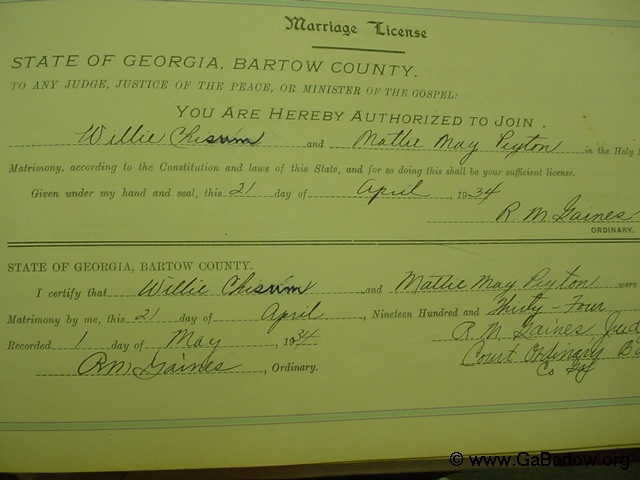 Marriage License
STATE OF GEORGIA, BARTOW COUNTY.
TO ANY JUDGE, JUSTICE OF THE PEACE, OR MINISTER OF THE GOSPEL:
YOU ARE HEREBY AUTHORIZED TO JOIN.
Willie Chisum and Mattie May Peyton in the Holy
Matrimony, according to the Constitution and laws of this State, and for so doing this shall be your sufficient license.
Given under my hand and seal, this 21 day of April, 1934
R. M. Gaines
ORDINARY.
STATE OF GEORGIA, BARTOW COUNTY.
I certify that Willie Chisum and Mattie May Peyton were
Matrimony by me, this 21 day of April, Nineteen Hundred and Thirty-Four
Recorded 1 day of May 1934 R. M. Gaines Jud
RM Gaines, Ordinary. Court Ordinary Ba
Co Ga
© www.GaBartow.org